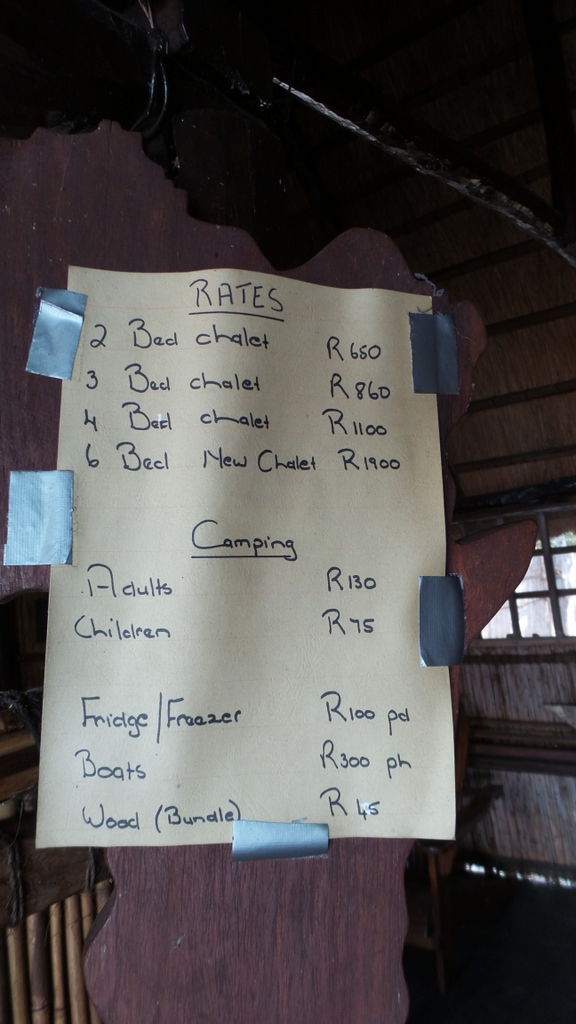 RATES
2 Bed chalet R650
3 Bed chalet R860
4 Bed chalet R1100
6 Bed New Chalet R1900
Camping
Adults R130
Children R75
Fridge/Freezer R100 pd
Boats R300 ph
Wood (Bundle) R45